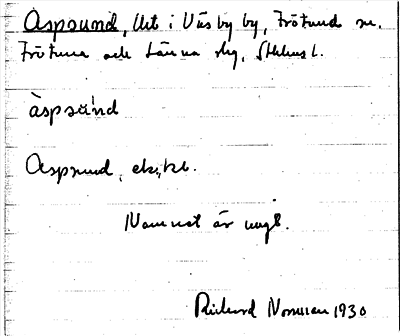 Aspsund, lht i Väsby by, Frötuna sn.
Frötuna och Länna slg, Sthlms l.
àspsùnd
Aspsund, ek.kt.
Namnet är ungt.
Rickard Norman 1930